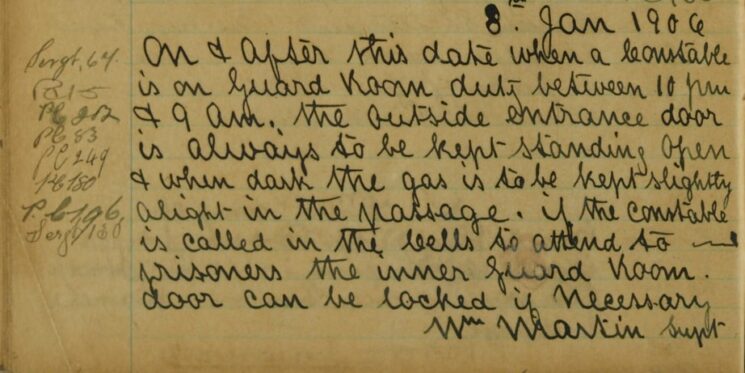 8th Jan 1906
On & After this date when a Constable
is on Guard Room duty between 10 pm
& 9 am. the outside entrance door
is always to be kept standing open
& when dark the gas is to be kept slightly
alight in the passage. if the constable
is called in the Cells to attend to
prisoners the inner Guard Room.
door can be locked if necessary
Wm Martin Supt
Sergt. 64.
PC 15
PC 202
PC 83
PC 249
PC 180
P.C 196
Sergt 130